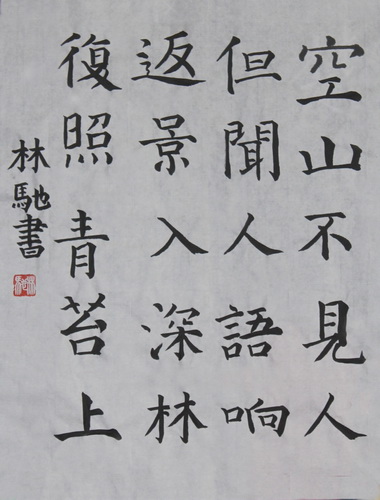 空山不見人
但聞人語响
返景入深林
復照青苔上
林馳書